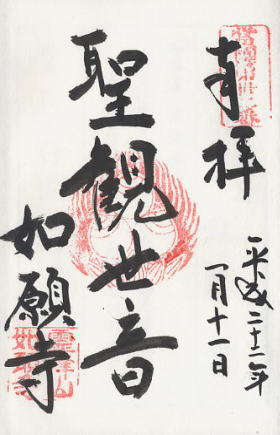 奉拝
平成二十二年
一月十一日
聖観世音
如願寺